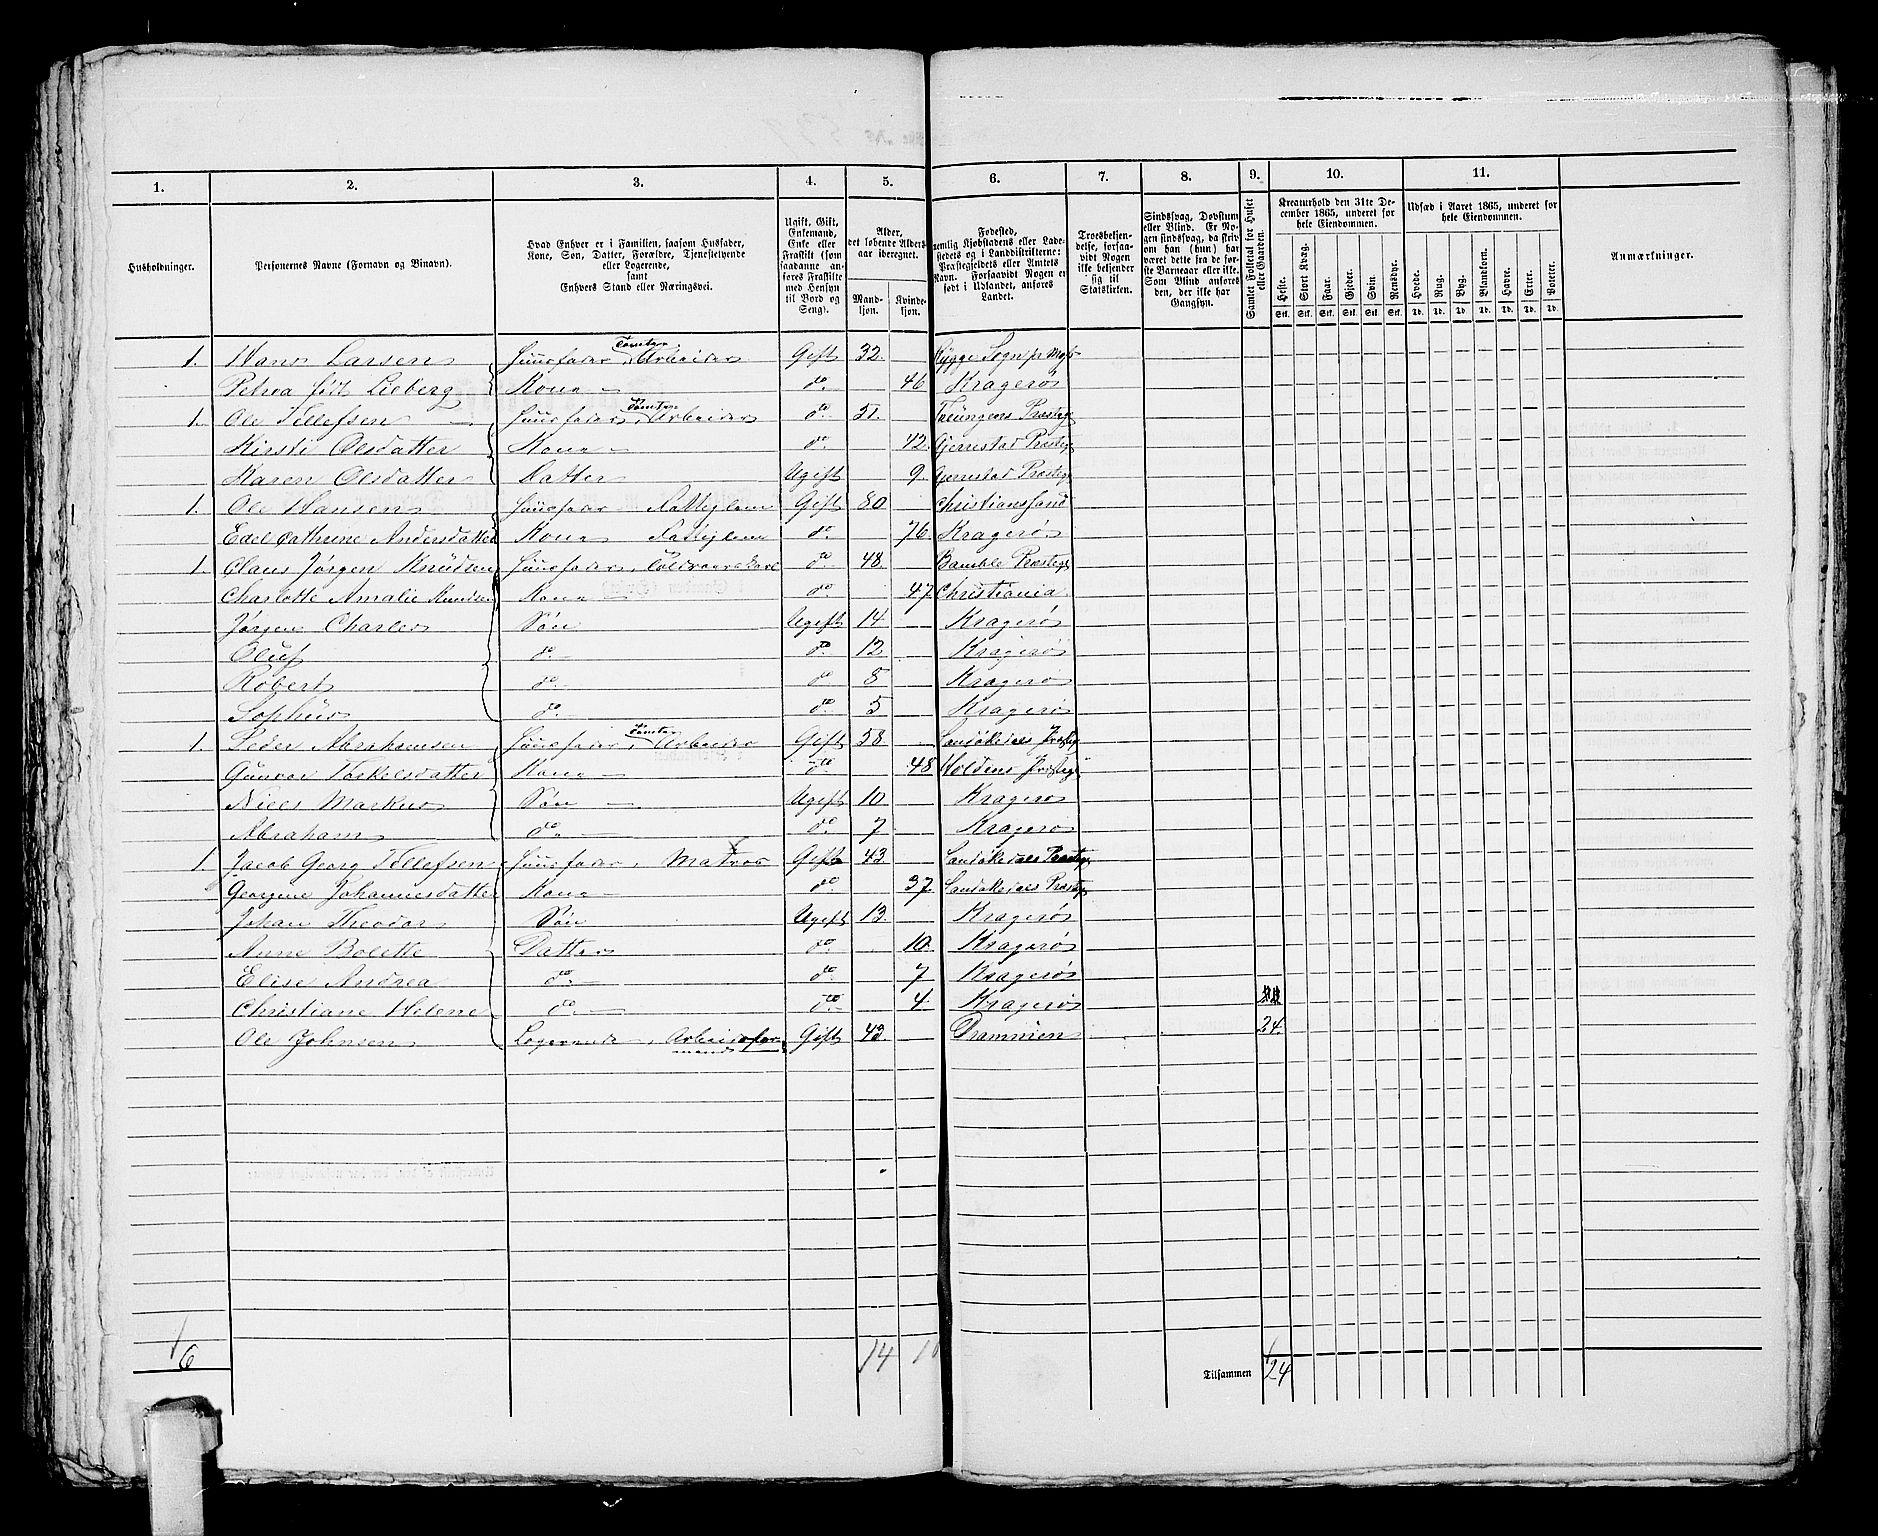 1. 2. 3. 4. 5. 6. 7. 8. 9. 10. 11.
Husholdninger.
Personernes Navne (Fornavn og Binavn).
Hvad Enhver er i Familien, saasom Husfader,
Kone, Søn, Datter, Forældre, Tjenestetyende
eller Logerende,
samt
Enhvers Stand eller Næringsvei.
Ugift, Gift,
Enkemand,
Enke eller
Fraskilt (som
saadanne an-
føres Fraskilte
med Hensyn
til Bord og
Seng).
Alder,
det løbende Alders-
aar iberegnet.
Mand-
kjøn.
Kvinde-
kjøn.
Fødested,
nemlig Kjøbstadens eller Lade-
stedets og i Landdistrikterne:
Præstegjeldets eller Amtets
Navn. Forsaavidt Nogen er
født i Udlandet, anføres
Landet.
Troesbekjen-
delse, forsaa-
vidt Nogen
ikke bekjender
sig til
Statskirken.
Sindssvag, Døvstum
eller Blind. Er No-
gen sindssvag, da skriv
om han (hun) har
været dette fra de før-
ste Barneaar eller ikke.
Som Blind anføres
den, der ikke har
Gangsyn.
Samlet Folketal for Huset
eller Gaarden.
Kreaturhold den 31te De-
cember 1865, underet for
hele Eiendommen.
Heste. Stort Kvæg. Faar. Gjeder. Svin. Rensdyr.
Stk. Stk. Stk. Stk. Stk. Stk.
Udsæd i Aaret 1865, underet for
hele Eiendommen.
Hvede. Rug. Byg. Blandkorn. Havre. Erter. Poteter.
Td. Td. Td. Td. Td. Td. Td.
Anmærkninger.
1. Hans Larsen Huusfader, Tomter Arbeider Gift 32. Rygge Sogn pr Moss
Petrea født Lieberg Kone do. 46 Kragerø
1. Ole Tellefsen Huusfader, Tomter Arbeider do. 51. Treungens Præsteg
Kirsti Olsdatter Kone do 42. Gjerrestad Præsteg
Karen Olsdatter Datter Ugift 9. Gjerrestad Præsteg
1. Ole Hansen Huusfader Fattiglem Gift 80 Christiansand
Edel Cathrine Andersdatter Kone Fattiglem do. 76. Kragerø
1. Claus Jørgen Knudsen Huusfader, do 48. Bamble Præsteg
Charlotte Amalie Knudsen Kone do. 47. Christiania
Jørgen Charles Søn Ugift 14 Kragerø
Oluf do. do. 12 Kragerø
Robert do. do 8 Kragerø
Sophus do. do. 5 Kragerø
1. Peder Abrahamsen Huusfader, Tomter Arbeider Gift 58 Sandøkedals Præsteg
Gunvor Torkelsdatter Kone do. 48 Holdens Præsteg
Niels Markus Søn Ugift 10 Kragerø
Abraham do. do. 7 Kragerø
1. Jacob Georg Tellefsen Huusfader, Matros Gift 43 Sandøkedals Præsteg
Georgine Johannesdatter Kone do. 37. Sandøkedals Præsteg
Johan Theodor Søn Ugift 13. Kragerø
Anne Bolette Datter do. 10. Kragerø
Elise Andrea do. do. 7 Kragerø
Christiane Helene do. do. 4. Kragerø
Ole Johnsen Logerende, Arbeidsfor
mand Gift 43. Drammen 24.
6 14 10 Tilsammen 24